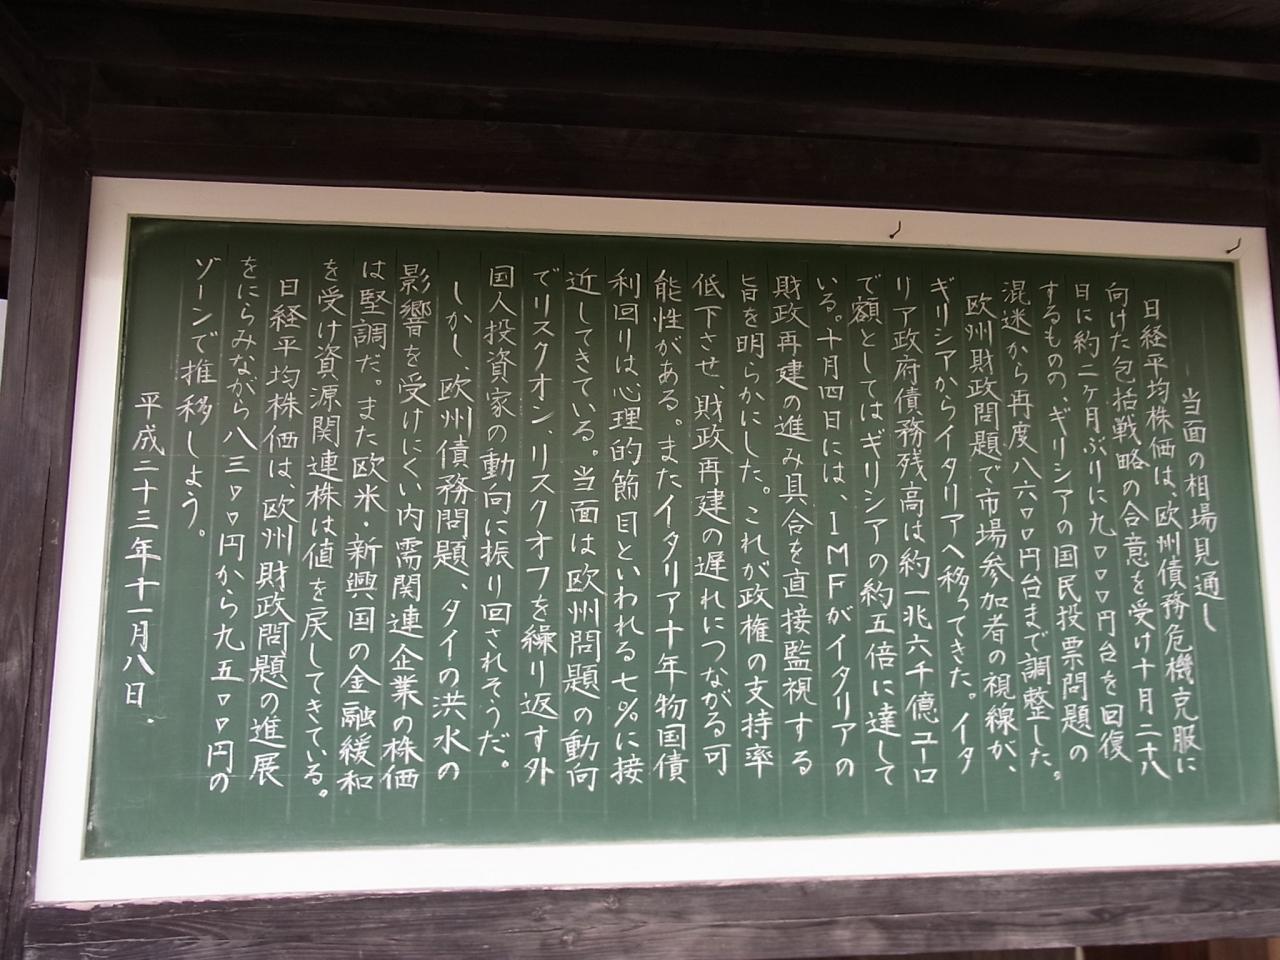 当面の相場見通し
日経平均株価は、欧州債務危機克服に
向けた包括戦略の合意を受け十月二十八
日に約二ヶ月ぶりに九〇〇〇円台を回復
するものの、ギリシアの国民投票問題の
混迷から再度八六〇〇円台まで調整した。
欧州財政問題で市場参加者の視線が、
ギリシアからイタリアへ移ってきた。イタ
リア政府債務残高は約一兆六千億ユーロ
で額としてはギリシアの約五倍に達して
いる。十月四日には、IMFがイタリアの
財政再建の進み具合を直接監視する
旨を明らかにした。これが政権の支持率
低下させ、財政再建の遅れにつながる可
能性がある。またイタリア十年物国債
利回りは心理的節目といわれる七%に接
近してきている。当面は欧州問題の動向
でリスクオン、リスクオフを繰り返す外
国人投資家の動向に振り回されそうだ。
しかし、欧州債務問題、タイの洪水の
影響を受けにくい内需関連企業の株価
は堅調だ。また欧米・新興国の金融緩和
を受け資源関連株は値を戻してきている。
日経平均株価は、欧州財政問題の進展
をにらみながら八三〇〇円から九五〇〇円の
ゾーンで推移しよう。
平成二十三年十一月八日.